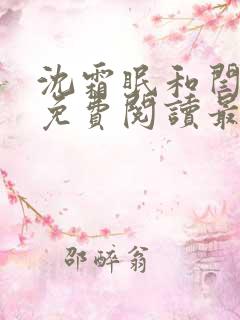 沈霜眠和閨
免費閱讀最
邵醉翁